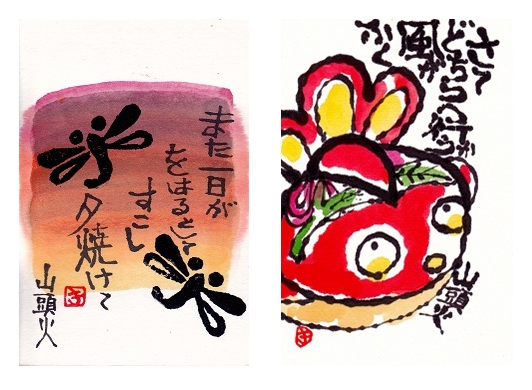 また一日が
をはるとして
すこし
夕焼けて
山頭火
さて
どちらへ行かう
風が
ふく
山頭火